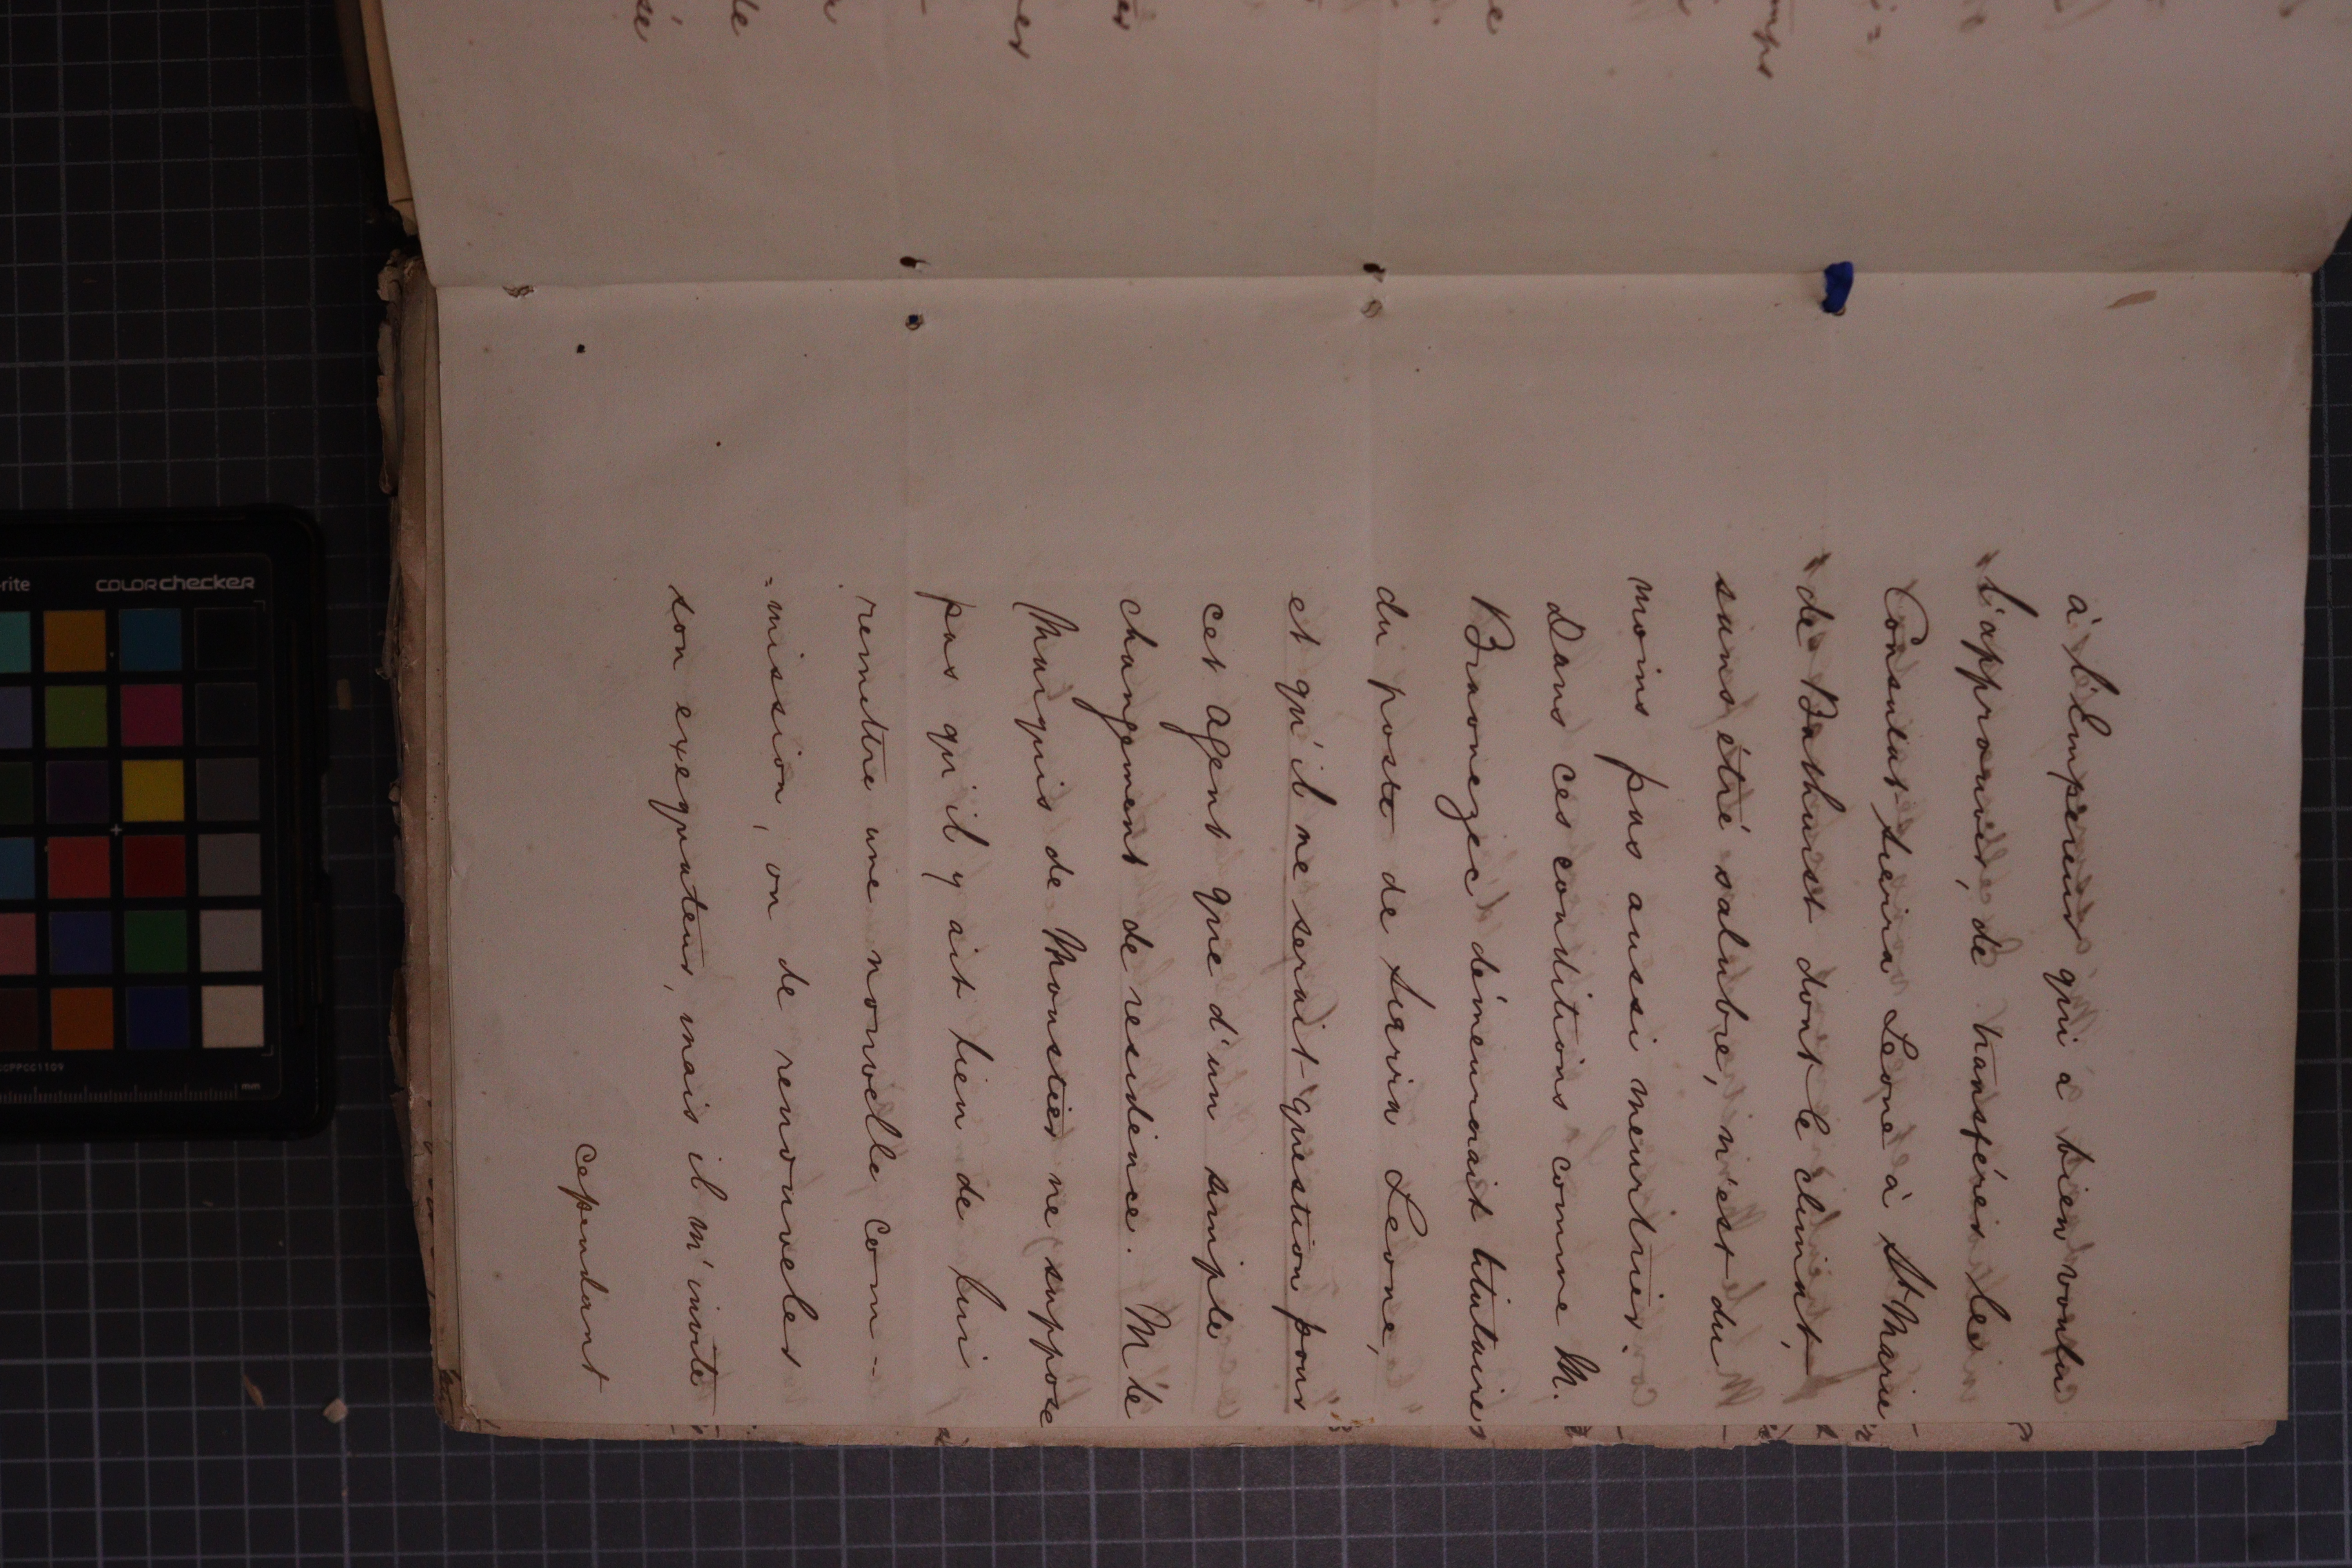 à l'Empereur qui a bien voulu
l'approuver, de transférer le
Consulat Sierra Leone à Ste Marie
de Bathurst dont le climat,
sans être salubre, n'est du
moins pas aussi meurtrier.
Dans ces conditions comme M.
Braouezec démeurait titulaire
du poste de Sierra Leone,
et qu'il ne serait question pour
cet agent que d'un simple
changement de residence. M le
Marquis de Moustier ne suppose
pas qu'il y ait lien de lui
remettre une nouvelle com-
=mission, ou de renouveler
son exequatur, mais il m'invite
cependant